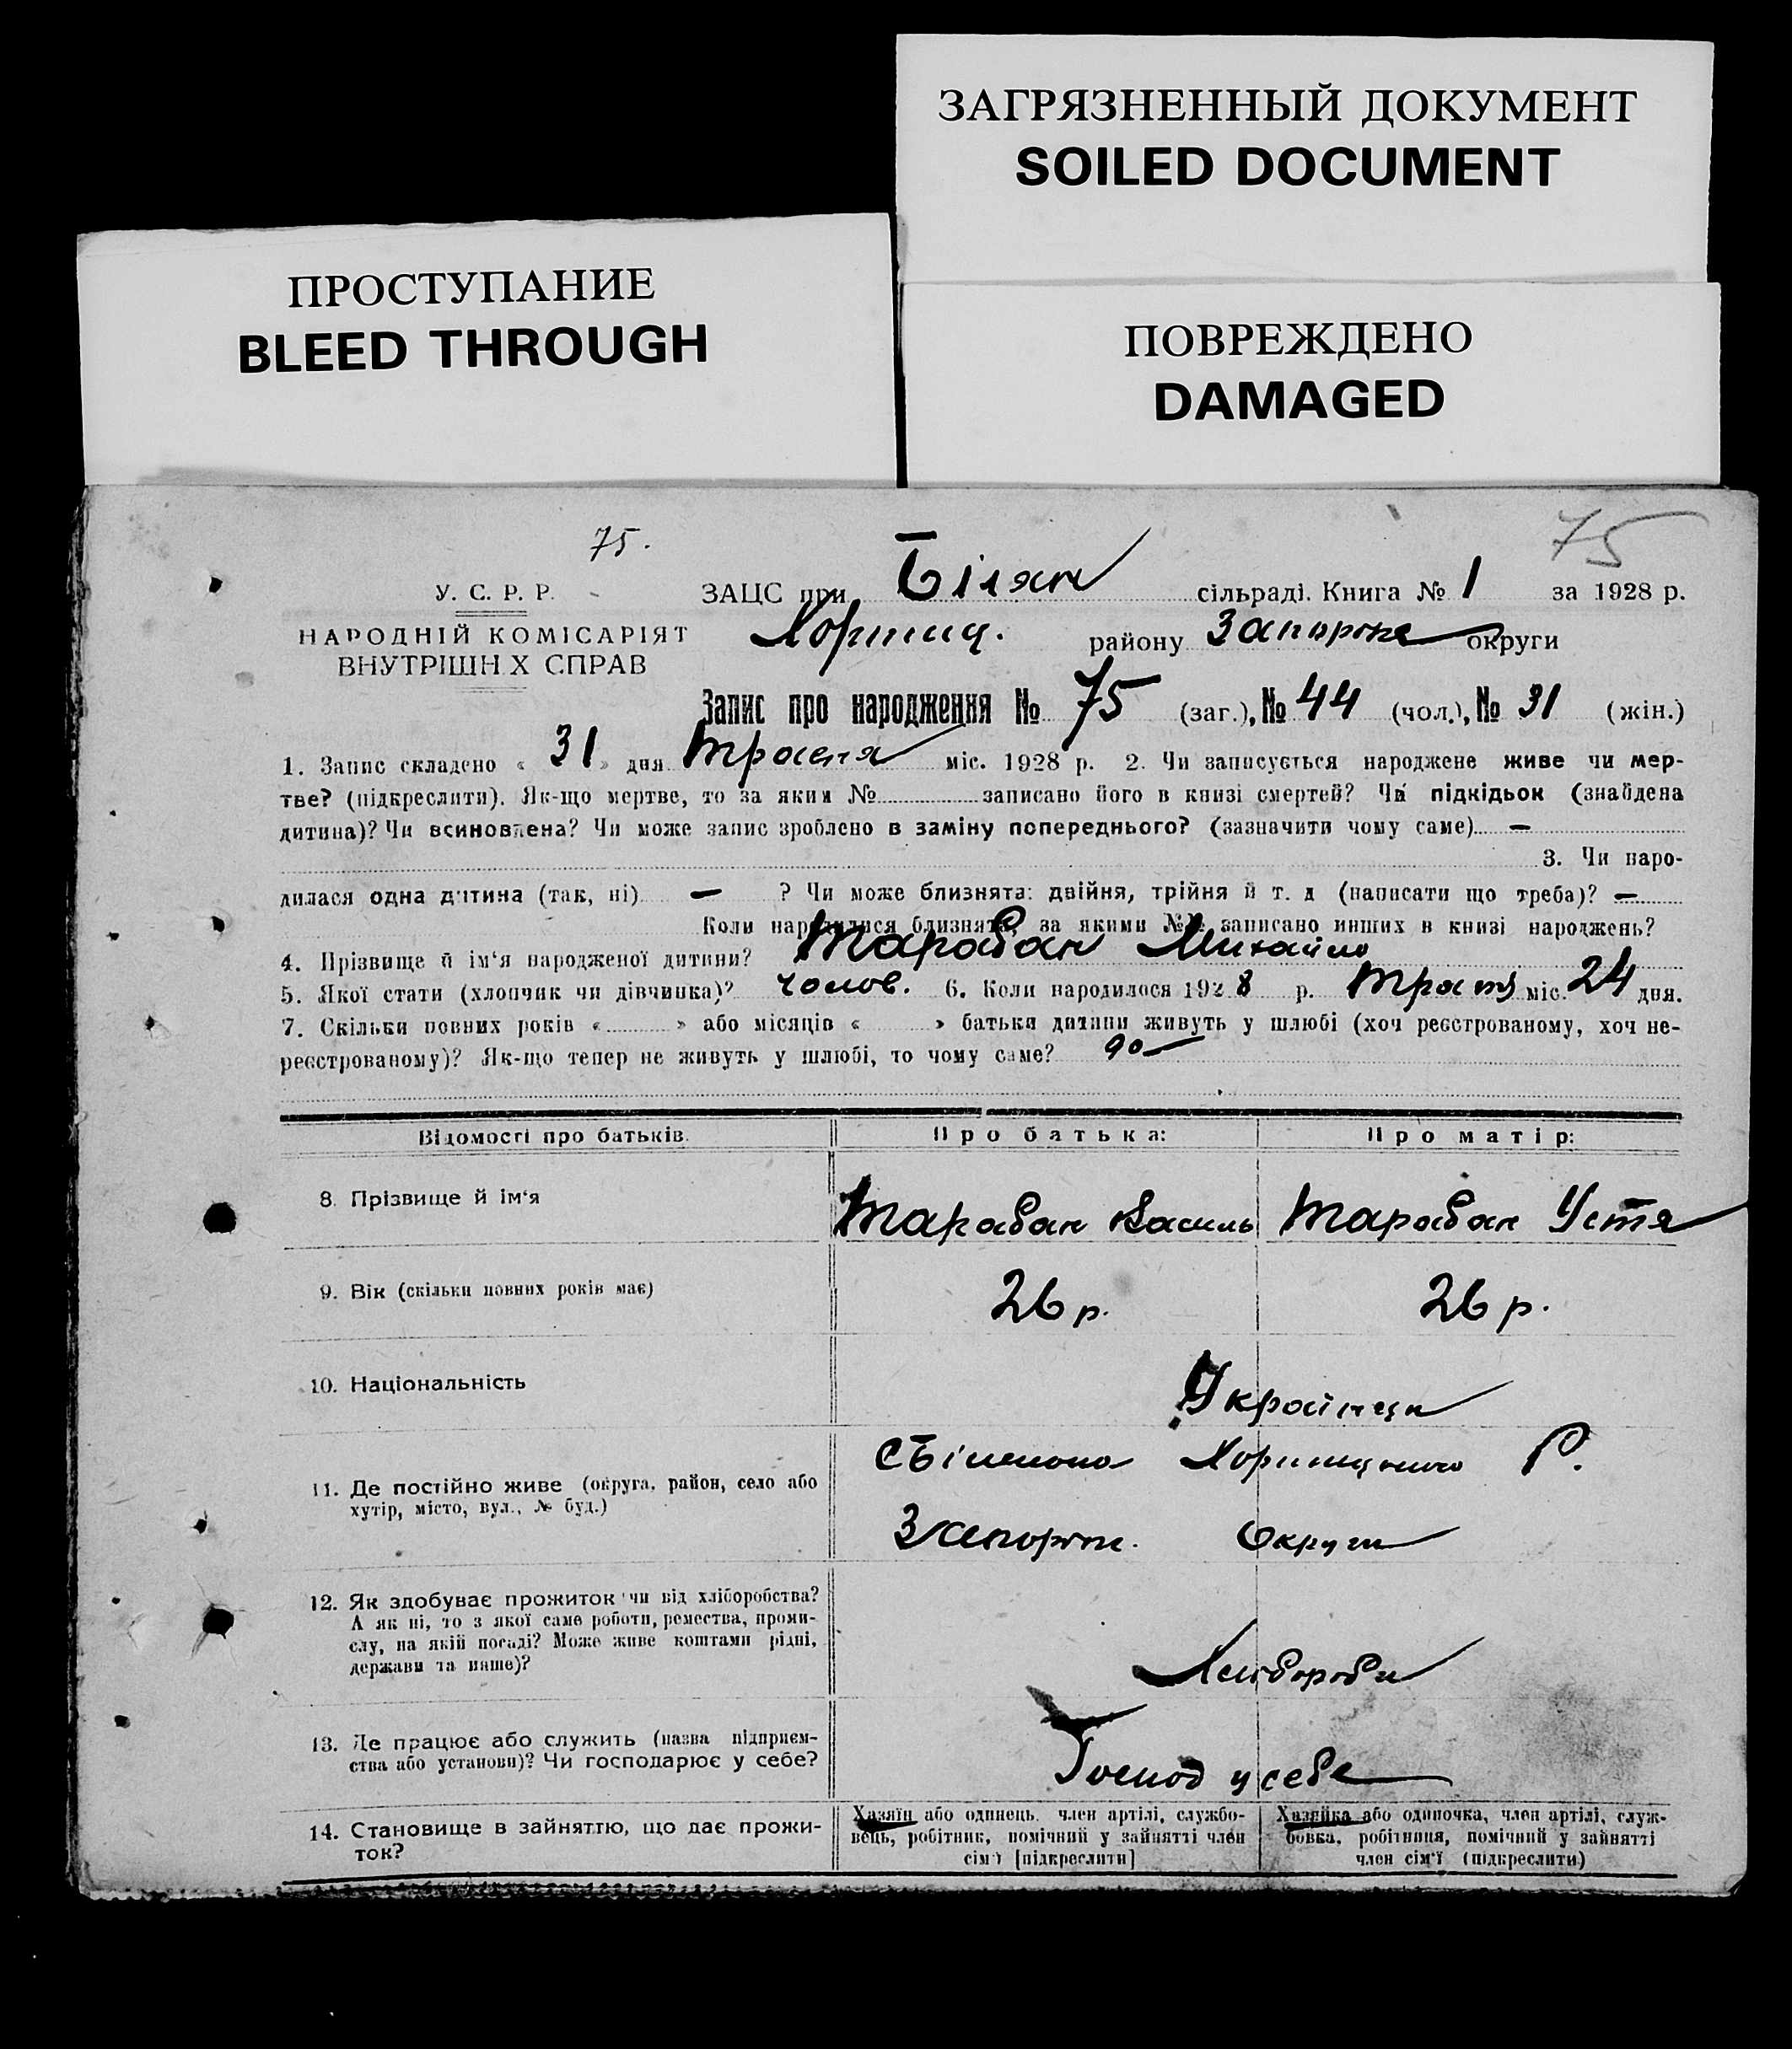 ЗАГРЯЗНЕННЫЙ ДОКУМЕНТ
SOILED DOCUMENT
ПРОСТУПАНИЕ
BLEED THROUGH
ПОВРЕЖДЕНО
DAMAGED
75.
75
У. С. Р. Р.
НАРОДНІЙ КОМІСАРІЯТ
ВНУТРІШН Х СПРАВ
ЗАЦС при Білян сільраді. Книга № 1 за 1928 р.
Хортиц. району Запорж округи
Запис про народження № 75 (заг.), № 44 (чол.), № 31 (жін.)
1. Запис складено « 31 » дня Травня міс. 1928 р. 2. Чи записується народжене живе чи мер-
тве? (підкреслити). Як-що мертве, то за яким № записано його в книзі смертей? Чи підкідьок (знайдена
дитина)? Чи всиновлена? Чи може запис зроблено в заміну попереднього? (зазначити чому саме) —
3. Чи наро-
дилася одна дитина (так, ні) — ? Чи може близнята: двійня, трійня й т. д (написати що треба)? —
Коли народилися близнята, за якими №№ записано инших в книзі народжень?
4. Прізвище й ім'я народженої дитини? Тарабан Михайло
5. Якої статі (хлопчик чи дівчинка)? чолов. 6. Коли народилося 1928 р. Трав міс. 24 дня.
7. Скільки повних років « » або місяців « » батьки дитини живуть у шлюбі (хоч реєстрованому, хоч не-
реєстрованому)? Як-що тепер не живуть у шлюбі, то чому саме?
Відомості про батьків. Про батька: Про матір:
8. Прізвище й ім'я Тарабан Василь Тарабан Устя
9. Вік (скільки повних років має) 26 р. 26 р.
10. Національність Українци
11. Де постійно живе (округа, район, село або
хутір, місто, вул., № буд.)
Р.
Запорж. Округи
12. Як здобуває прожиток чи від хліборобства?
А як ні, то з якої саме роботи, ремества, проми-
слу, на якій посаді? Може живе коштами рідні,
держави та инше)?
Хлибороби
13. Де працює або служить (назва підприєм-
ства або установи)? Чи господарює у себе?
Господ у себе
14. Становище в зайняттю, що дає прожи-
ток?
Хазяїн або одинець, член артілі, службо-
вець, робітник, помічний у зайнятті член
сім'ї [підкреслити]
Хазяйка або одиночка, член артілі, служ-
бовка, робітниця, помічний у зайнятті
член сім'ї (підкреслити)